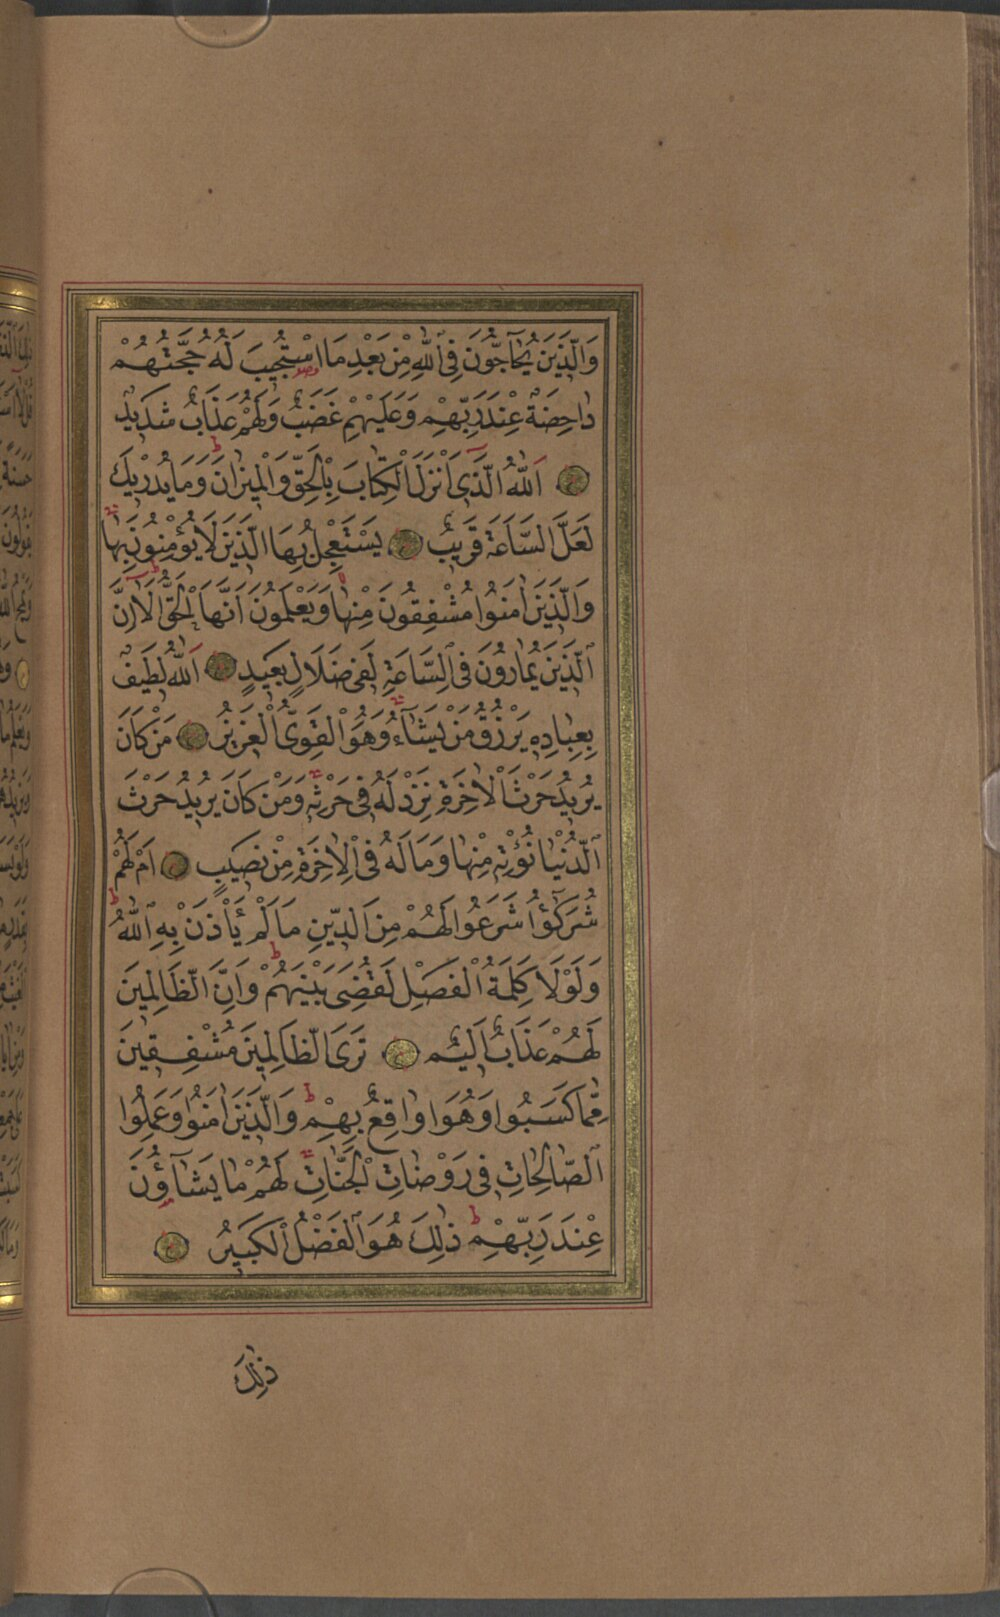 وَالَّذِينَ يُحَاجُّونَ فِي اللهِ مِنْ بَعْدِ مَا اسْتُجِيبَ لَهُ حُجَّتُهُمْ
دَاحِضَةٌ عِنْدَ رَبِّهِمْ وَعَلَيْهِمْ غَضَبٌ وَلَهُمْ عَذَابٌ شَدِيدٌ
اَللهُ الَّذِي اَنْزَلَ الْكِتَابَ بِالْحَقِّ وَالْمِيزَانَ وَمَا يُدْرِيكَ
لَعَلَّ السَّاعَةَ قَرِيبٌ يَسْتَعْجِلُ بِهَا الَّذِينَ لَا يُؤْمِنُونَ بِهَا
وَالَّذِينَ اٰمَنُوا مُشْفِقُونَ مِنْهَا وَيَعْلَمُونَ اَنَّهَا الْحَقُّ اَلَا اِنَّ
الَّذِينَ يُمَارُونَ فِي السَّاعَةِ لَفِي ضَلَالٍ بَعِيدٍ اَللهُ لَطِيفٌ
بِعِبَادِهِ يَرْزُقُ مَنْ يَشَاءُ وَهُوَ الْقَوِيُّ الْعَزِيزُ مَنْ كَانَ
يُرِيدُ حَرْثَ الْاٰخِرَةِ نَزِدْ لَهُ فِي حَرْثِهِ وَمَنْ كَانَ يُرِيدُ حَرْثَ
الدُّنْيَا نُؤْتِهِ مِنْهَا وَمَا لَهُ فِي الْاٰخِرَةِ مِنْ نَصِيبٍ اَمْ لَهُمْ
شُرَكَٓؤُا شَرَعُوا لَهُمْ مِنَ الدِّينِ مَا لَمْ يَأْذَنْ بِهِ اللهُ
وَلَوْلَا كَلِمَةُ الْفَصْلِ لَقُضِيَ بَيْنَهُمْ وَاِنَّ الظَّالِمِينَ
لَهُمْ عَذَابٌ اَلِيمٌ تَرَى الظَّالِمِينَ مُشْفِقِينَ
مِمَّا كَسَبُوا وَهُوَ وَاقِعٌ بِهِمْ وَالَّذِينَ اٰمَنُوا وَعَمِلُوا
الصَّالِحَاتِ فِي رَوْضَاتِ الْجَنَّاتِ لَهُمْ مَا يَشَاؤُنَ
عِنْدَ رَبِّهِمْ ذٰلِكَ هُوَ الْفَضْلُ الْكَبِيرُ
ذٰلِكَ